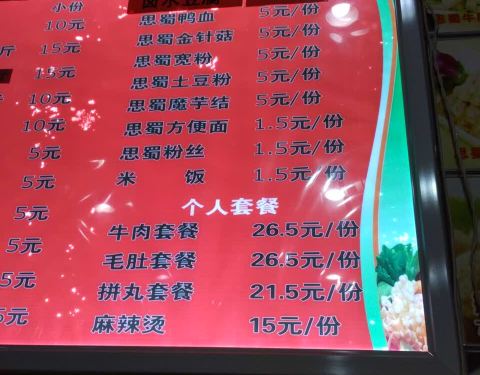 小份
卤水豆腐
思蜀鸭血 5元/份
10元
思蜀金针菇 5元/份
斤 15元
思蜀宽粉 5元/份
15元
思蜀土豆粉 5元/份
10元
思蜀魔芋结 5元/份
10元
思蜀方便面 1.5元/份
5元
思蜀粉丝 1.5元/份
5元
米 饭 1.5元/份
5元
个人套餐
5元
牛肉套餐 26.5元/份
5元
毛肚套餐 26.5元/份
5元
拼丸套餐 21.5元/份
麻辣烫 15元/份